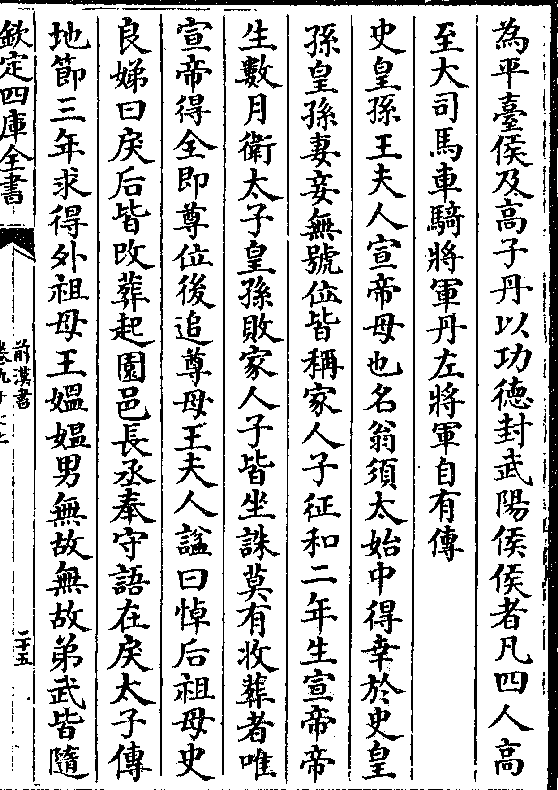 為平臺侯及髙子丹以功德封武陽侯侯者凡四人髙
至大司馬車騎將軍丹左將軍自有傳
史皇孫王夫人宣帝母也名翁須太始中得幸於史皇
孫皇孫妻妾無號位皆稱家人子征和二年生宣帝帝
生數月衛太子皇孫敗家人子皆坐誅莫有收葬者唯
宣帝得全即尊位後追尊母王夫人諡曰悼后祖母史
良娣曰戾后皆改葬起園邑長丞奉守語在戾太子傳
地節三年求得外祖母王媼媼男無故無故弟武皆隨
欽定四庫全書
前漢書
二十五